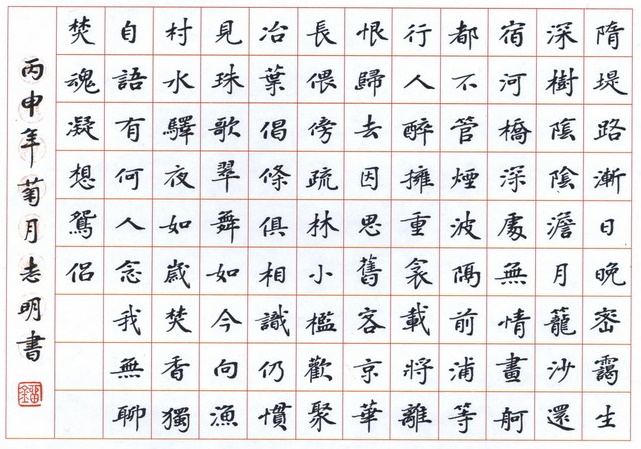 隋堤路漸日晚密靄生
深樹隂陰澹月籠沙還
宿河橋深處無情畫舸
都不管煙波隔前浦等
行人醉擁重衾載將離
恨歸去因思舊客京華
長偎傍疏林小檻歡聚
冶葉倡條俱相識仍慣
見珠歌翠舞如今向漁
村水驛夜如歲焚香獨
自語有何人念我無聊
焚魂凝想鴛侶
丙申年菊月志明書